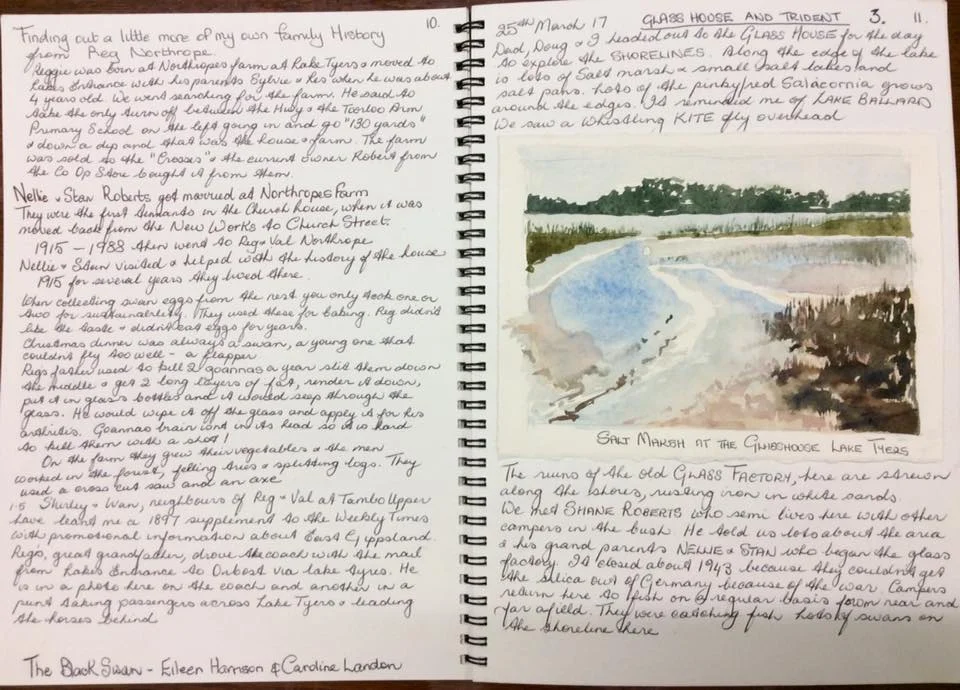 10.
Finding out a little more of my own family History
from Reg Northrope.
Reggie was born at Northropes farm at Lake Tyers & moved to
Lakes Entrance with his parents Sylvie & Les when he was about
4 years old. We went searching for the farm. He said to
take the only turn off between the Hwy & the Toorloo Arm
Primary School on the left going in and go "130 yards"
& down a dip and that was the house & farm. The farm
was sold to the "Crosses" & the current owner Robert from
the Co Op Store bought it from them.
Nellie & Stan Roberts got married at Northropes Farm
They were the first tennants in the Church house, when it was
moved back from the New Works to Church Street.
1915 - 1988 then went to Reg & Val Northrope
Nellie & Stan visited & helped with the history of the house
1915 for several years they lived there.
When collecting swan eggs from the nest you only took one or
two for sustainability. They used these for baking. Reg didn't
like the taste & didn't eat eggs for years.
Christmas dinner was always a swan, a young one that
couldn't fly too well - a flapper
Regs father used to kill 2 goannas a year slit them down
the middle & get 2 long layers of fat, render it down,
put it in glass bottles and it would seep through the
glass. He would wipe it off the glass and apply it for his
arthritis. Goannas brain isnt in its head so it is hard
to kill them with a shot!
On the farm they grew their vegetables & the men
worked in the forest, felling trees & splitting logs. They
used a cross cut saw and an axe
1.5 Shirley & Wan, neighbours of Reg & Val at Tambo Upper
have leant me a 1897 supplement to the Weekly Times
with promotional information about East Gippsland.
Regs, great grandfather, drove the coach with the mail
from Lakes Entrance to Orbost via Lake Tyres. He
is in a photo here on the coach and another in a
punt taking passengers across Lake Tyers & leading
the horses behind
The Black Swan - Eileen Harrison & Caroline Landon
25th March 17 GLASS HOUSE AND TRIDENT 3. 11.
Dad, Doug & I headed out to the GLASS HOUSE for the day
to explore the SHORELINES. Along the edge of the lake
is lots of salt marsh & small salt lakes and
salt pans. Lots of the pinky/red Salacornia grows
around the edges. It reminded me of LAKE BALLARD
We saw a Whistling KITE fly overhead
SALT MARSH AT THE GLASSHOUSE LAKE TYERS
The ruins of the old GLASS FACTORY, here are strewn
along the shores, rusting iron in white sands
We met SHANE ROBERTS who semi lives here with other
campers in the bush. He told us lots about the area
& his grand parents NELLIE & STAN who began the glass
factory. It closed about 1943 because they couldn't get
the silica out of Germany because of the war. Campers
return here to fish on a regular basis from near and
far afield. They were catching fish lots of swans on
the shoreline here